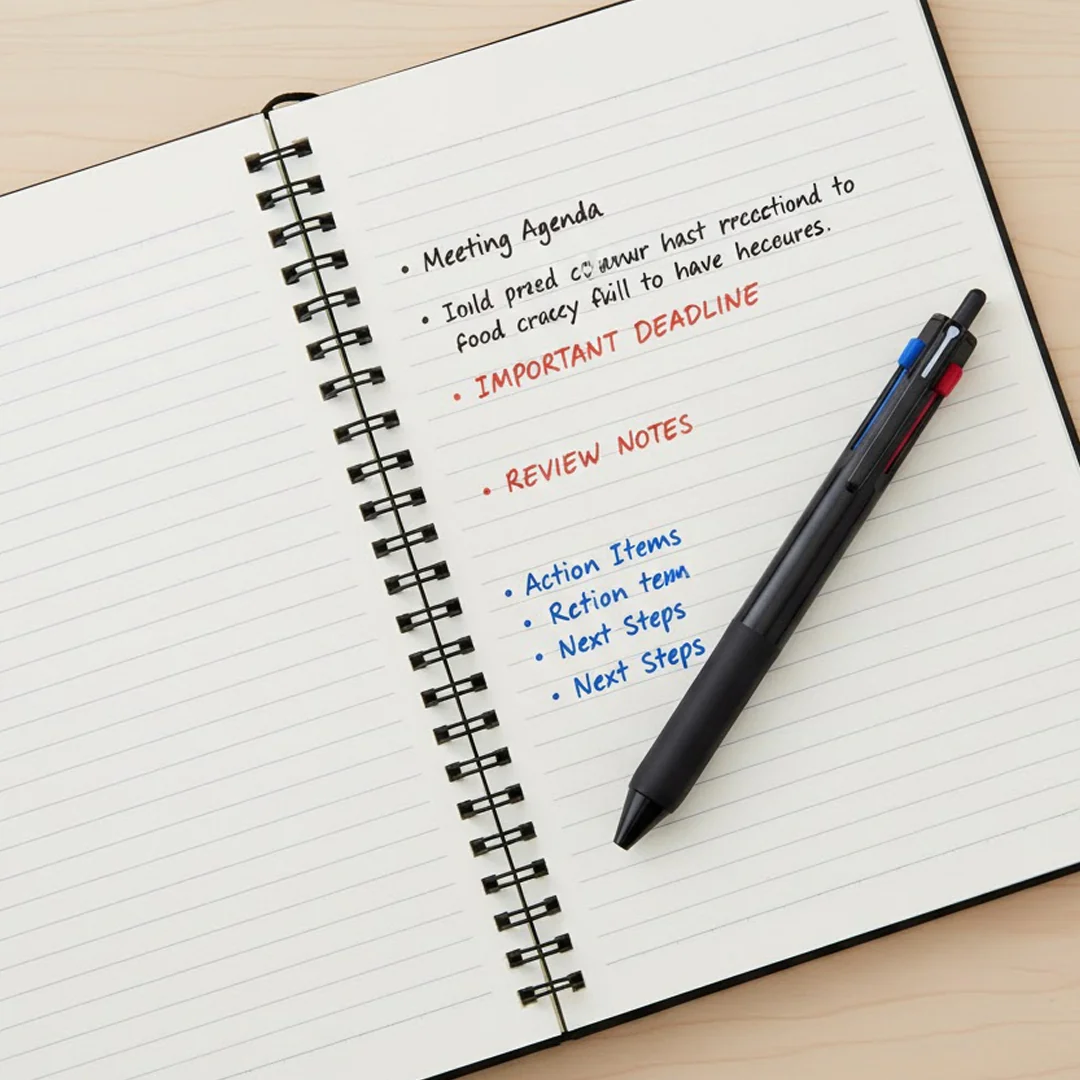 • Meeting Agenda
• Ioild pred hast rrccctiond to
food cracey fvill to have heceures.
• IMPORTANT DEADLINE
• REVIEW NOTES
• Action Items
• Rction tem
• Next Steps
• Next Steps